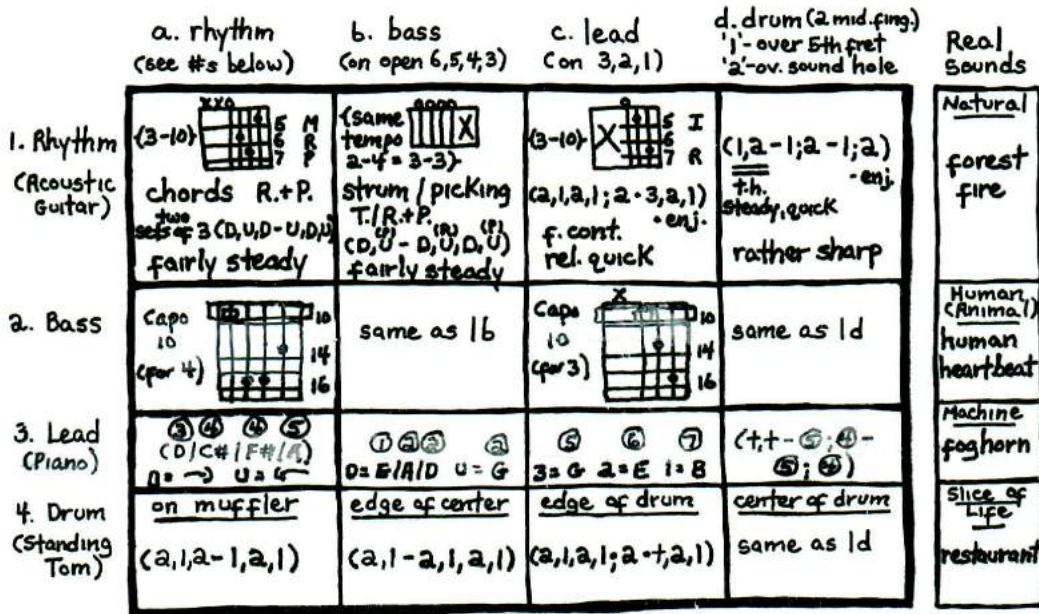 a. rhythm
(see #s below)
b. bass
(on open 6,5,4,3)
c. lead
(on 3,2,1)
d. drum (2 mid. fing.)
'1'- over 5th fret
'2'-ov. sound hole
Real
Sounds
1. Rhythm
(Acoustic
Guitar)
xxo
{3-10}
5 M
6 R
7 P
chords R.+P.
two
sets of 3 (D,U,D-U,D,U)
fairly steady
{same
tempo
2-4 = 3-3}
oooo
X
strum / picking
T./R.+P.
(P) (R) (P)
(D,U - D,U,D,U)
fairly steady
o
{3-10}
X
5 I
6
7 R
(2,1,2,1; 2·3,2,1)
-enj.
f. cont.
rel. quick
(1,2-1;2-1;2)
-enj.
t.h.
steady, quick
rather sharp
Natural
forest
fire
2. Bass
Capo
10
(for 4)
10
14
16
same as 1b
x
Capo
10
(for 3)
10
14
16
same as 1d
Human
(Animal)
human
heartbeat
3. Lead
(Piano)
③ ④ ④ ⑤
(D/C#/F#/A)
① ② ③ ②
D=E/A/D U=G
⑤ ⑥ ⑦
3=G 2=E 1=B
(t,t-⑤;④-
⑤;④)
Machine
foghorn
4. Drum
(Standing
Tom)
on muffler
(2,1,2-1,2,1)
edge of center
(2,1-2,1,2,1)
edge of drum
(2,1,2,1;2·t,2,1)
center of drum
same as 1d
Slice of
Life
restaurant